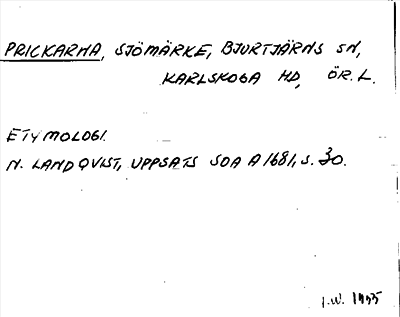 PRICKARNA, SJÖMÄRKE, BJURTJÄRNS SN,
KARLSKOGA HD, ÖR. L.
ETYMOLOGI.
N. LANDQVIST, UPPSATS SOA A 1681, S. 30.
I.W. 1955